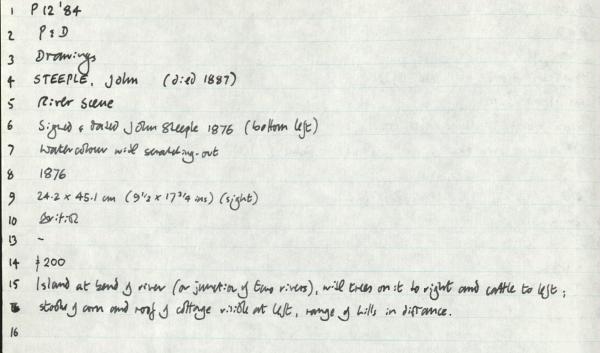 1 P 12 '84
2 P & D
3 Drawings
4 STEEPLE, John (died 1887)
5 River Scene
6 Signed & dated John Steeple 1876 (bottom left)
7 Watercolour with scratching-out
8 1876
9 24.2 x 45.1 cm (9 1/2 x 17 3/4 ins) (sight)
10 British
13 -
14 £200
15 Island at bend of river (or junction of two rivers), with trees on it to right and cattle to left;
stooks of corn and roof of cottage visible at left, range of hills in distance.
16